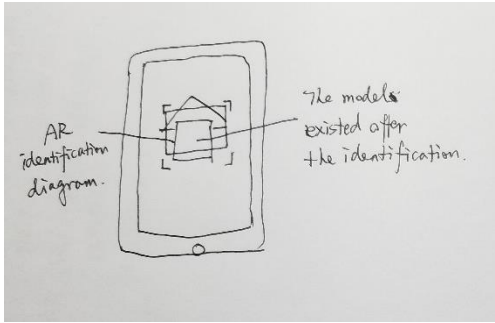 AR
identification
diagram.
The models
existed after
the identification.